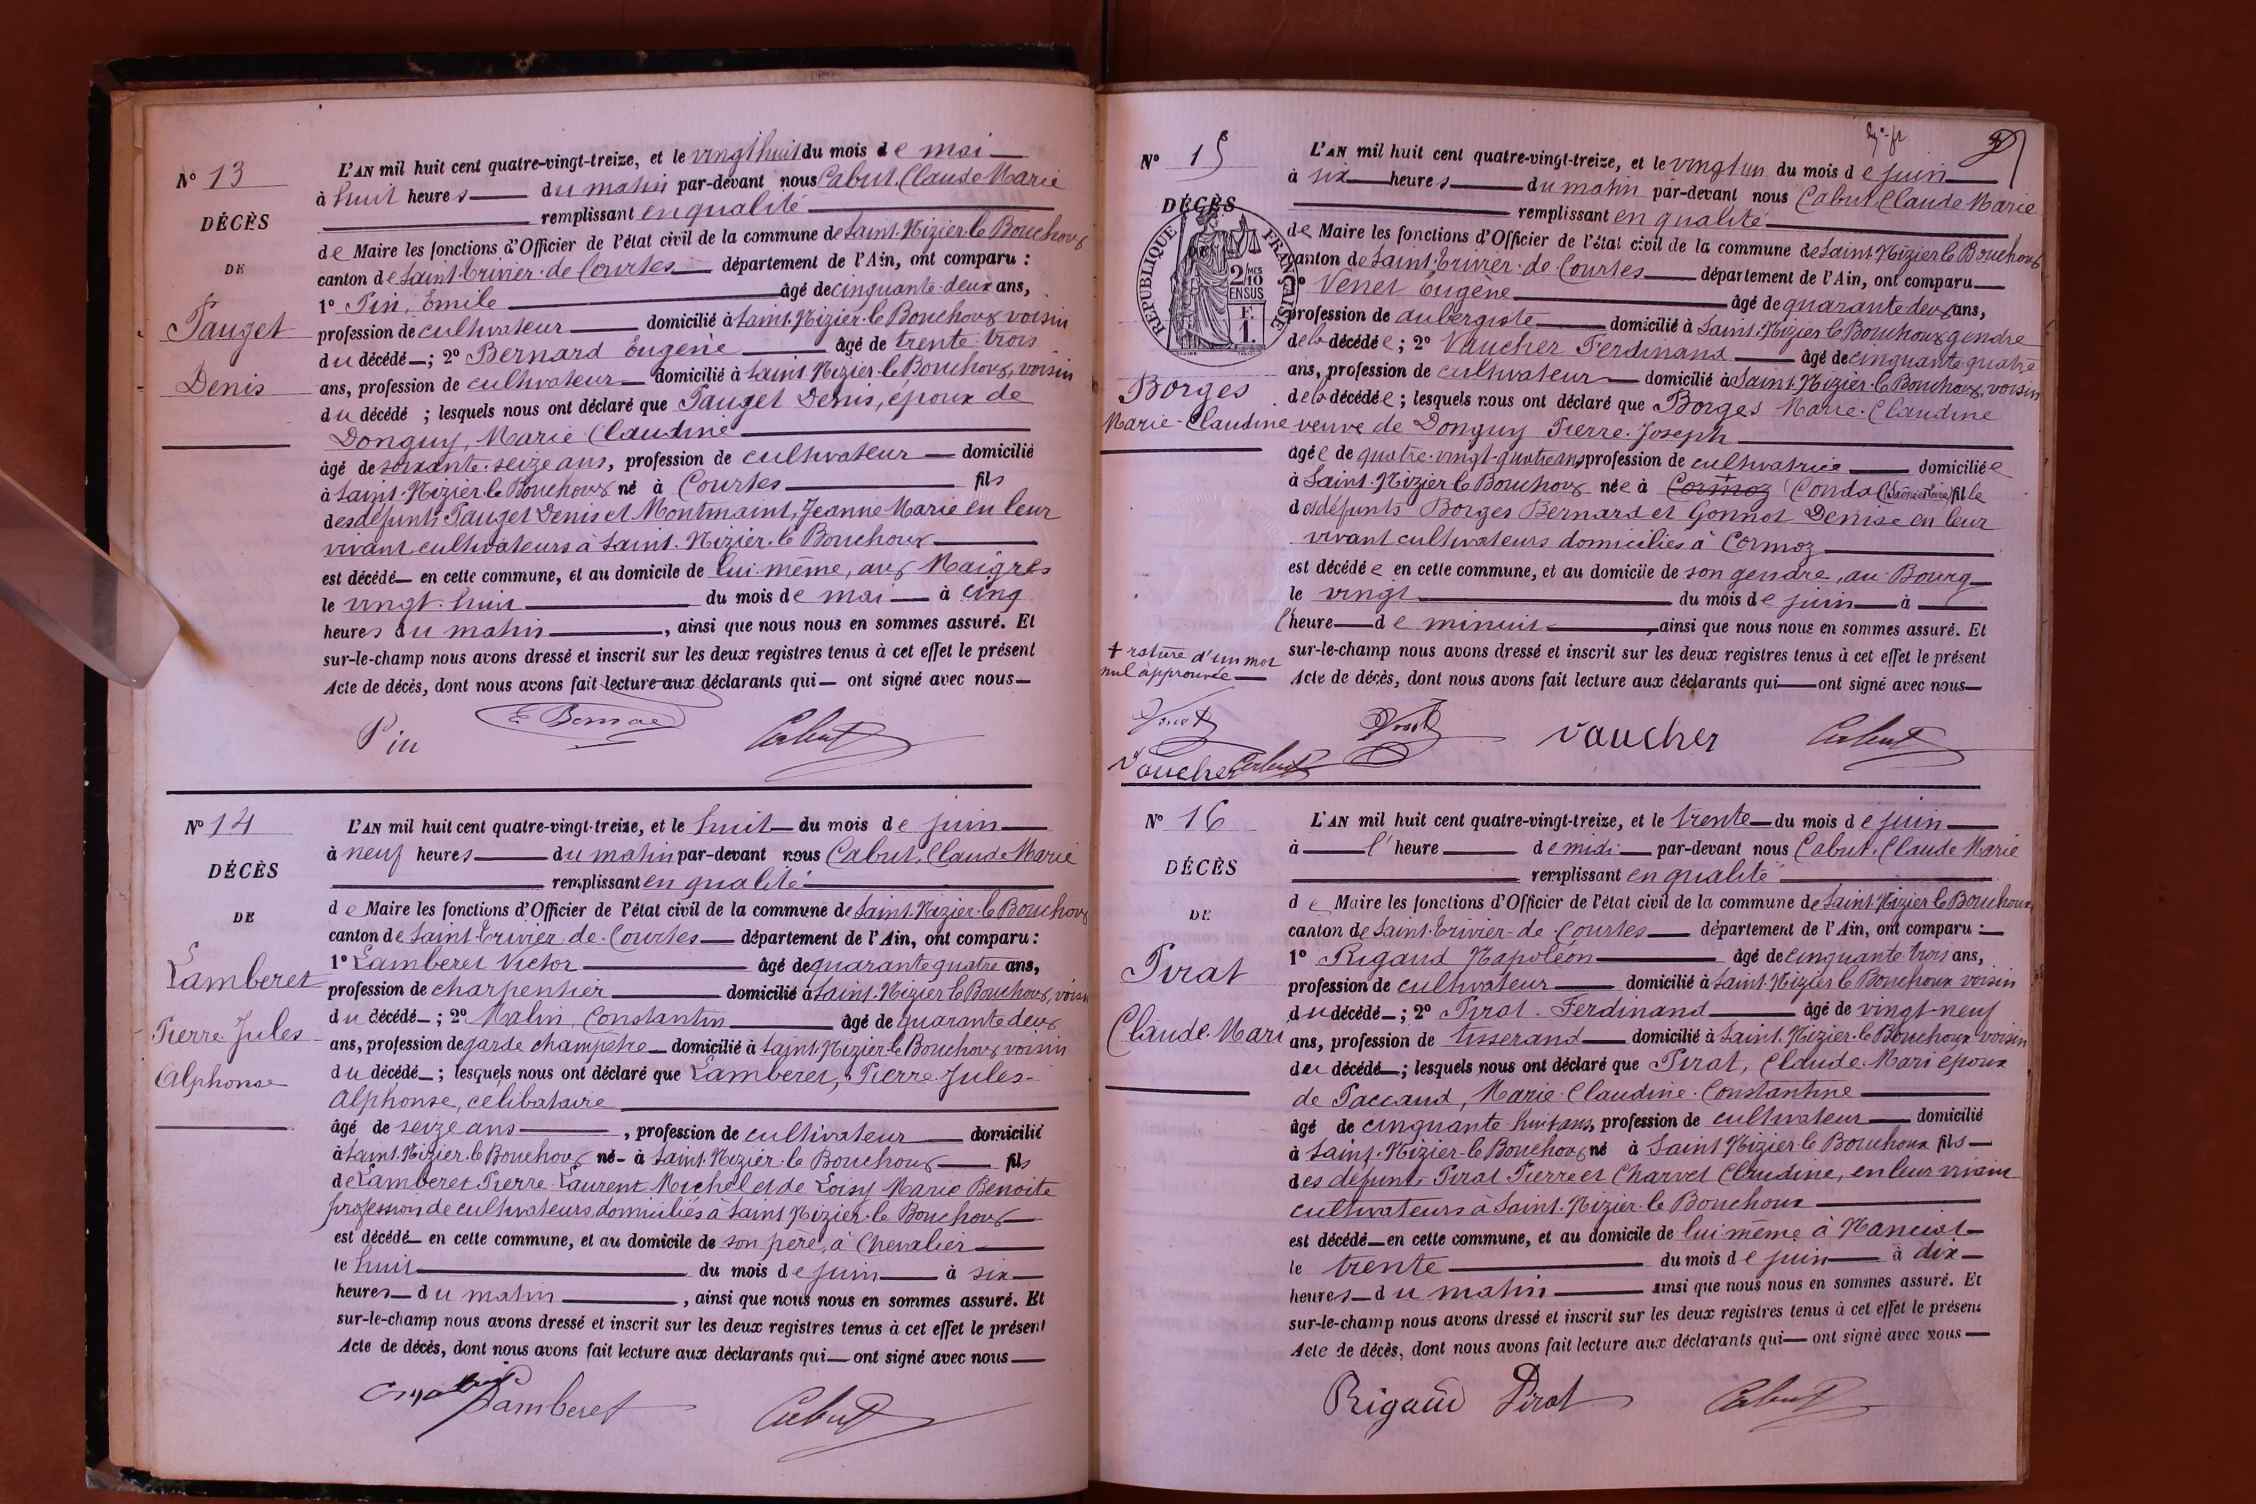 N° 13
DÉCÈS
DE
Pauget
Denis
L'AN mil huit cent quatre-vingt-treize, et le vingt huit du mois de mai
à huit heures du matin par-devant nous Cabut, Claude Marie
remplissant en qualité
de Maire les fonctions d'Officier de l'état civil de la commune de Saint-Nizier-le Bouchoux
canton de Saint-Trivier-de Courtes département de l'Ain, ont comparu :
1° Pin, Emile âgé de cinquante-deux ans,
profession de cultivateur domicilié à Saint-Nizier-le Bouchoux voisin
du décédé ; 2° Bernard Eugène âgé de trente-trois
ans, profession de cultivateur domicilié à Saint-Nizier-le Bouchoux, voisin
du décédé ; lesquels nous ont déclaré que Pauget Denis, époux de
Donguy, Marie Claudine
âgé de soixante-seize ans, profession de cultivateur domicilié
à Saint-Nizier-le Bouchoux né à Courtes fils
des défunts Pauget Denis et Montmaint, Jeanne-Marie en leur
vivant cultivateurs à Saint-Nizier-le Bouchoux
est décédé en cette commune, et au domicile de lui-même, aux Maigres
le vingt-huit du mois de mai à cinq
heures du matin, ainsi que nous nous en sommes assuré. Et
sur-le-champ nous avons dressé et inscrit sur les deux registres tenus à cet effet le présent
Acte de décès, dont nous avons fait lecture aux déclarants qui ont signé avec nous
Pin E Bernard Cabut
N° 14
DÉCÈS
DE
Lamberet
Pierre-Jules
Alphonse
L'AN mil huit cent quatre-vingt-treize, et le huit du mois de juin
à neuf heures du matin par-devant nous Cabut, Claude Marie
remplissant en qualité
de Maire les fonctions d'Officier de l'état civil de la commune de Saint-Nizier-le Bouchoux
canton de Saint-Trivier-de-Courtes département de l'Ain, ont comparu :
1° Lamberet Victor âgé de quarante quatre ans,
profession de charpentier domicilié à Saint-Nizier le Bouchoux, voisin
du décédé ; 2° Malin Constantin âgé de quarante deux
ans, profession de garde champêtre domicilié à Saint-Nizier-le Bouchoux voisin
du décédé ; lesquels nous ont déclaré que Lamberet, Pierre-Jules-
Alphonse, célibataire
âgé de seize ans, profession de cultivateur domicilié
à Saint-Nizier-le Bouchoux né à Saint-Nizier-le Bouchoux fils
de Lamberet Pierre-Laurent Michel et de Loisy Marie Benoite
profession de cultivateurs domiciliés à Saint Nizier-le Bouchoux
est décédé en cette commune, et au domicile de son père, à Chevalier
le huit du mois de juin à six
heures du matin, ainsi que nous nous en sommes assuré. Et
sur-le-champ nous avons dressé et inscrit sur les deux registres tenus à cet effet le présent
Acte de décès, dont nous avons fait lecture aux déclarants qui ont signé avec nous
Lamberet Cabut
N° 15
DÉCÈS
RÉPUBLIQUE FRANÇAISE
2 10 MES EN SUS
F. 1.
Borges
Marie-Claudine
L'AN mil huit cent quatre-vingt-treize, et le vingt un du mois de juin
à six heures du matin par-devant nous Cabut, Claude Marie
remplissant en qualité
de Maire les fonctions d'Officier de l'état civil de la commune de Saint-Nizier le Bouchoux
canton de Saint-Trivier-de Courtes département de l'Ain, ont comparu
1° Venet Eugène âgé de quarante deux ans,
profession de aubergiste domicilié à Saint-Nizier le Bouchoux gendre
de la décédée ; 2° Vaucher Ferdinand âgé de cinquante quatre
ans, profession de cultivateur domicilié à Saint-Nizier-le Bouchoux, voisin
de la décédée ; lesquels nous ont déclaré que Borges Marie-Claudine
veuve de Donguy Pierre-Joseph
âgée de quatre-vingt-quatre ans profession de cultivatrice domiciliée
à Saint-Nizier le Bouchoux née à Cormoz Condal (Saône et Loire) fille
des défunts Borges Bernard et Gonnot Denise en leur
vivant cultivateurs domiciliés à Cormoz
est décédée en cette commune, et au domicile de son gendre, au Bourg
le vingt du mois de juin à
l'heure de minuit, ainsi que nous nous en sommes assuré. Et
sur-le-champ nous avons dressé et inscrit sur les deux registres tenus à cet effet le présent
Acte de décès, dont nous avons fait lecture aux déclarants qui ont signé avec nous
+ rature d'un mot
nul approuvée
Venet Vaucher Cabut
Venet Vaucher Cabut
N° 16
DÉCÈS
DE
Pirat
Claude-Mari
L'AN mil huit cent quatre-vingt-treize, et le trente du mois de juin
à l'heure de midi par-devant nous Cabut, Claude Marie
remplissant en qualité
de Maire les fonctions d'Officier de l'état civil de la commune de Saint Nizier le Bouchoux
canton de Saint-Trivier-de Courtes département de l'Ain, ont comparu :
1° Rigaud Napoléon âgé de cinquante trois ans,
profession de cultivateur domicilié à Saint-Nizier le Bouchoux voisin
du décédé ; 2° Pirat Ferdinand âgé de vingt-neuf
ans, profession de tisserand domicilié à Saint-Nizier-le Bouchoux voisin
du décédé ; lesquels nous ont déclaré que Pirat, Claude-Mari époux
de Paccaud, Marie-Claudine-Constantine
âgé de cinquante huit ans, profession de cultivateur domicilié
à Saint-Nizier-le Bouchoux né à Saint Nizier-le Bouchoux fils
des défunts Pirat Pierre et Charvet Claudine, en leur vivant
cultivateurs à Saint-Nizier-le Bouchoux
est décédé en cette commune, et au domicile de lui-même à Manciat
le trente du mois de juin à dix
heures du matin ainsi que nous nous en sommes assuré. Et
sur-le-champ nous avons dressé et inscrit sur les deux registres tenus à cet effet le présent
Acte de décès, dont nous avons fait lecture aux déclarants qui ont signé avec nous
Rigaud Pirat Cabut